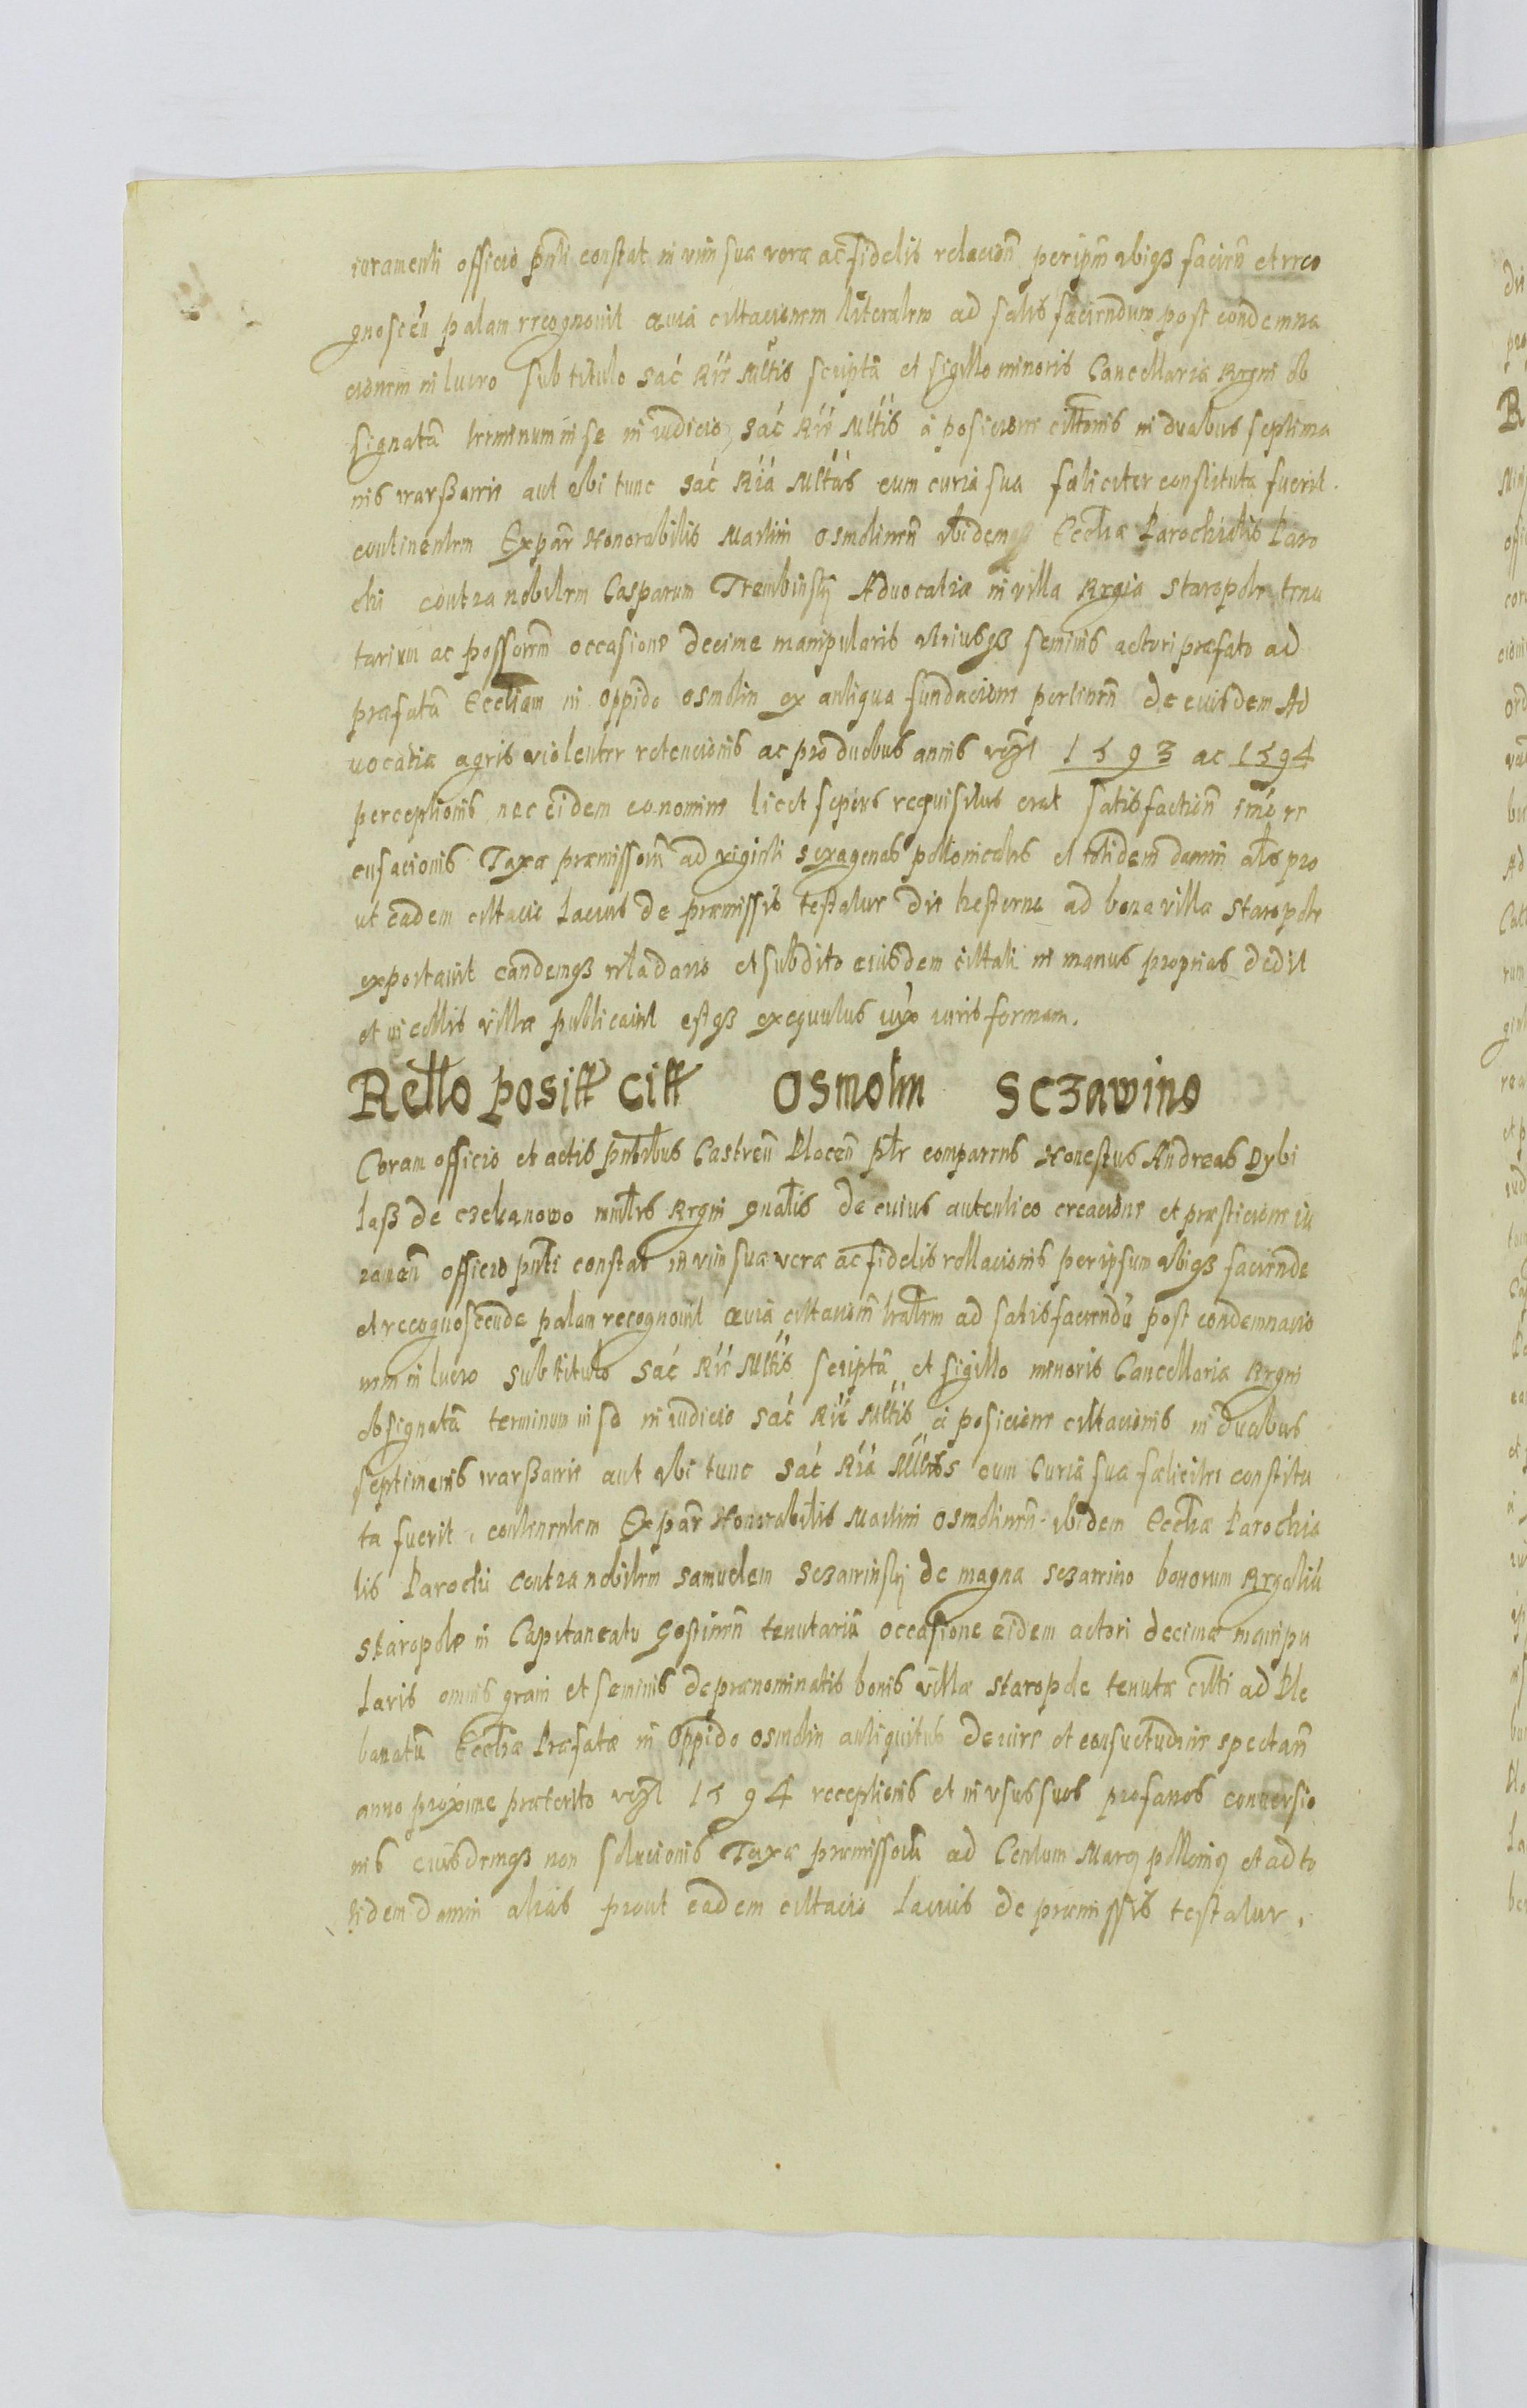 iuramenti officio pñti constat in vim suæ veræ ac fidelis relacioñ per ipm vbiqз facień et reco
gnosceń palam recognouit quia cittacionem literalem ad satisfaciendum post condemna
cionem in lucro sub titulo Sac Rie Mttis scriptã et sigillo minoris Cancellariæ Regni ob
signatã terminum in se in iudicio Sac Rie Mttis a posicione cittonis in duabus septima
nis warßawie aut vbi tunc Sac Ria Mttas cum curia sua fæliciter constituta fuerit
continentem Ex par Honorabilis Martini Osmolineñ ibidem Eccliæ Parochialis Paro
chi contra nobilem Casparum Trembinskj Aduocatiæ in villa Regia Staropole tenu
tarium ac possorem occasione decimæ manipularis vtriusqз seminis actori præfato ad
præfatã Eccliam in oppido Osmolin ex antiqua fundacione pertineñ de eiusdem Ad
uocatiæ agris violenter retencionis ac pro duobus annis vczt 1593 ac 1594
perceptionis nec eidem eo nomine licet sepius requisitus erat satisfactioñ imo re
cusacionis Taxæ præmissorũ ad viginti sexagenas pollonicales et totidem damni als pro
ut eadem cittacio Lacius de præmissis testatur die hesterna ad bona villæ Staropole
exportauit eandemqз vladario et subdito eiusdem cittati in manus proprias dedit
et in collis villæ publicauit estqз exequutus iux iuris formam.
Retto positt citt Osmolin Sczawino
Coram officio et actis pñtibus Castreñ Plocen ptr comparens Honestus Andreas Dybi
laß de Czekanowo mnltrs Regni gnalis de cuius autentico creacione et præsticione iu
rameñ officio pñti constat in vim suæ veræ ac fidelis rellacionis per ipsum vbiqз faciende
et recognoscende palam recognouit quia cittacionẽ lratrem ad satisfaciendũ post condemnacio
nem in lucro sub titulo Sac Rie Mttis scriptã et sigillo minoris Cancellariæ Regni
obsignatã terminum in se in iudicio Sac Rie Mttis a posicione cittacionis in duabus
septimanis warßawie aut vbi tunc Sac Ria Mttas cum Curia sua fæliciter constitu
ta fuerit, continentem Ex par Honorabilis Martini Osmolineñ ibidem Eccliæ Parochia
lis Parochi contra nobilem Samuelem Sczawinskj de magna Sczawino bonorum Regaliũ
Staropole in Capitaneatu Gostineñ tenutariũ occasione eidem actori decimæ manipu
laris omnis grani et seminis de prænominatis bonis villæ Staropole tenutæ citti ad Ple
banatũ Eccliæ Præfatæ in Oppido Osmolin antiquitus de iure et consuetudine spectañ
anno proxime præterito vczt 1594 receptionis et in vsus suos profanos conuersio
nis eiusdemqз non solucionis Taxæ præmissorũ ad Centum Marcz pollonicz et ad to
tidem damni alias prout eadem cittacio Lacius de præmissis testatur.